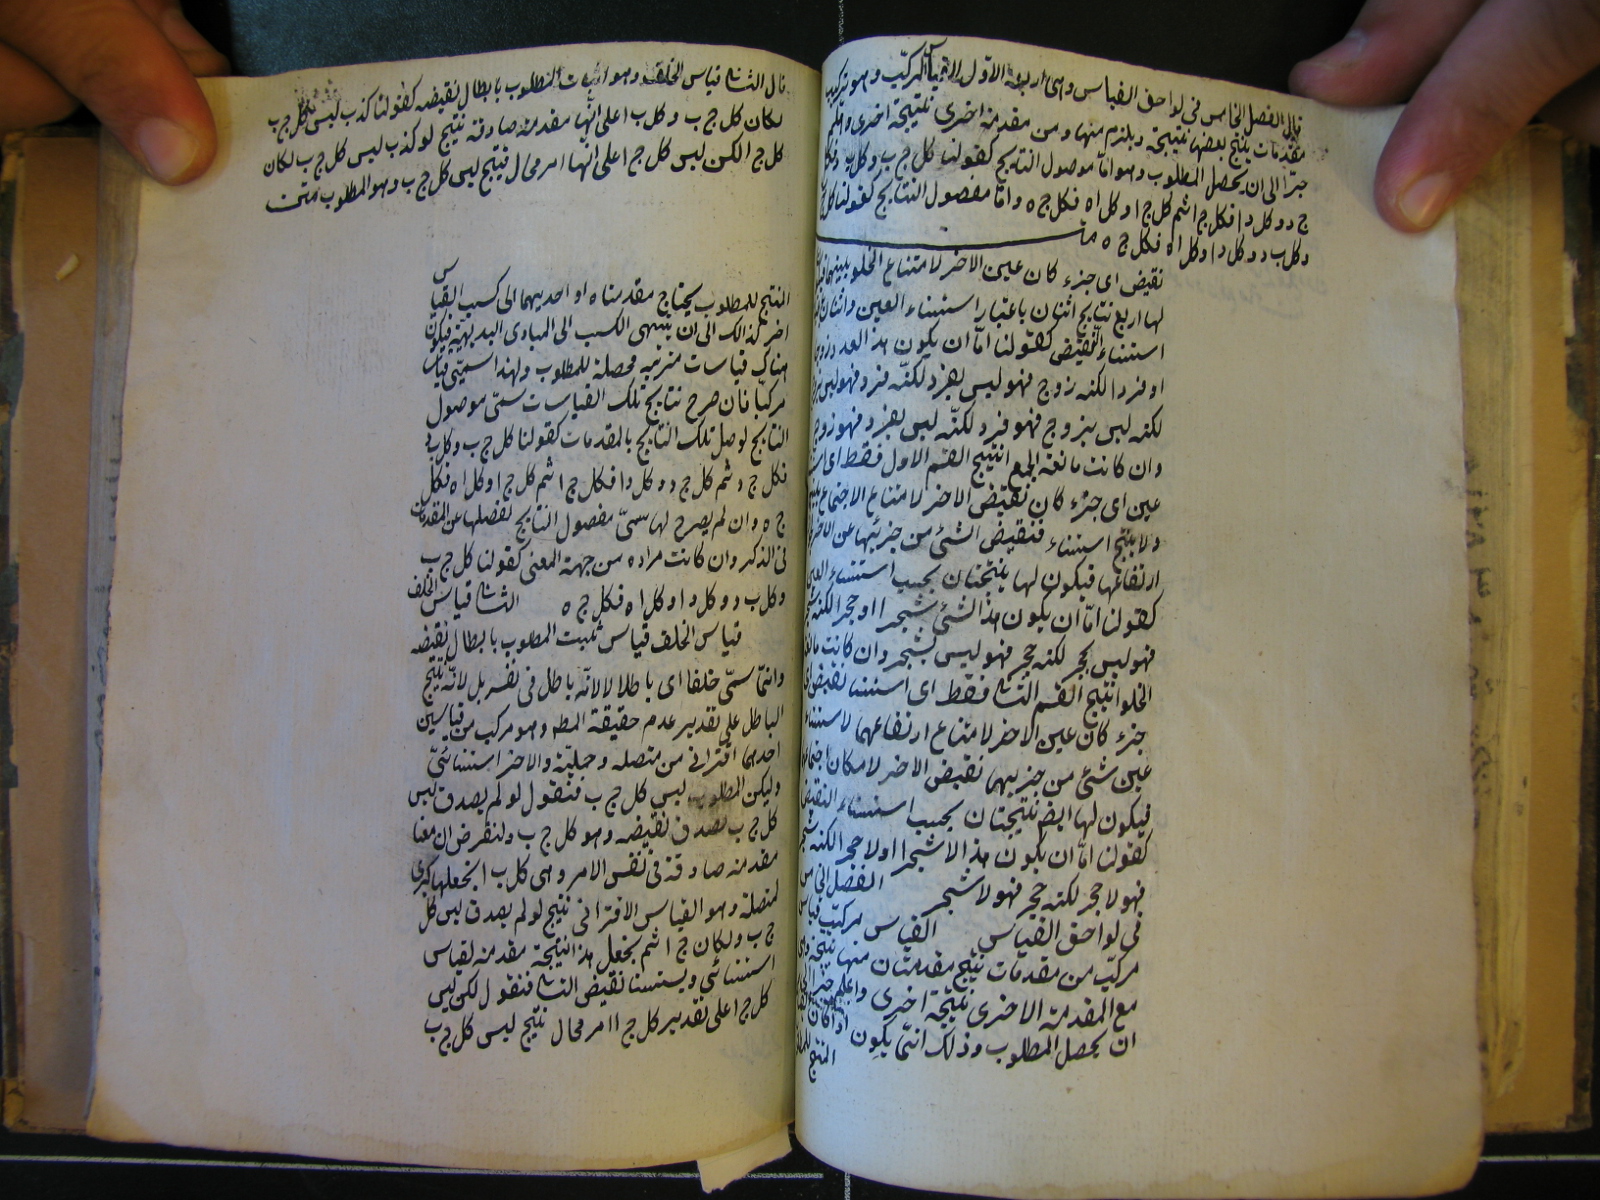 قال الفصل الخامس فى لواحق القياس وهى اربعة الاول القياس المركب وهو تركيب
مقدمات ينتج بعضها نتيجة ويلزم منها ومن مقدمة اخرى نتيجة اخرى وهلم
جرا الى ان يحصل المطلوب وهو اما موصول النتايج كقولنا كل ج ب وكل ب د فكل
ج د وكل د ا فكل ج ا ثم كل ج ا وكل ا ه فكل ج ه واما مفصول النتايج كقولنا كل ج ب
وكل ب د وكل د ا وكل ا ه فكل ج ه
نقيض اى جزء كان عين الاخر لامتناع الخلو بينهما
لها اربع نتايج اثنتان باعتبار استثناء العين واثنتان
استثناء النقيض كقولنا اما ان يكون هذا العدد زوجا
او فردا لكنه زوج فهو ليس بفرد لكنه فرد فهو ليس
لكنه ليس بزوج فهو فرد لكنه ليس بفرد فهو زوج
وان كانت مانعة الجمع انتج القسم الاول فقط اى
عين اى جزء كان نقيض الاخر لامتناع الاجتماع
ولا ينتج استثناء نقيض الشئ من جزئيها عن الاخر
ارتفاعها فيكون لها نتيجتان بحسب استثناء العين
كقولنا اما ان يكون هذا الشئ شجرا او حجرا لكنه
فهو ليس بحجر لكنه حجر فهو ليس بشجر وان كانت مانعة
الخلو انتج القسم الثانى فقط اى استثناء نقيض
جزء كان عين الاخر لامتناع ارتفاعهما لا استثناء
عين شئ من جزئيهما نقيض الاخر لامكان اجتماعهما
فيكون لها ايضا نتيجتان بحسب استثناء النقيض
كقولنا اما ان يكون هذا لا شجرا او لا حجرا لكنه
فهو لا حجر لكنه حجر فهو لا شجر الفصل الخامس
فى لواحق القياس القياس مركب قياس
مركب من مقدمات ينتج مقدمتان منها نتيجة وهى
مع المقدمة الاخرى نتيجة اخرى
ان يحصل المطلوب وذلك انما يكون
المنتج
قال الثانى قياس الخلف وهو اثبات المطلوب بابطال نقيضه كقولنا لو كذب ليس كل ج ب
لكان كل ج ب وكل ب ا على انها مقدمة صادقة ينتج لو كذب ليس كل ج ب لكان
كل ج ا لكن ليس كل ج ا على انها امر محال فينتج ليس كل ج ب وهو المطلوب متن
المنتج للمطلوب يحتاج مقدمتاه او احديهما الى كسب القياس
اخر كذالك الى ان ينتهى الكسب الى المبادى البديهية فيكون
هناك قياسات مترتبه محصلة للمطلوب ولهذا سمى قياسا
مركبا فان صرح نتايج تلك القياسات سمى موصول
النتايج لوصل تلك النتايج بالمقدمات كقولنا كل ج ب وكل ب د
فكل ج د ثم كل ج د وكل د ا فكل ج ا ثم كل ج ا وكل ا ه فكل
ج ه وان لم يصرح لها سمى مفصول النتايج لفصلها عن المقدمات
فى الذكر وان كانت مراده من جهة المعنى كقولنا كل ج ب
وكل ب د وكل د ا وكل ا ه فكل ج ه الثانى قياس الخلف
قياس الخلف قياس يثبت المطلوب بابطال نقيضه
وانما سمى خلفا اى باطلا لا لانه باطل فى نفسه بل لانه ينتج
الباطل على تقدير عدم حقيقة المط وهو مركب من قياسين
احدهما اقترانى من متصله وحملية والاخر استثنائى
وليكن المطلوب ليس كل ج ب فنقول لو لم يصدق ليس
كل ج ب لصدق نقيضه وهو كل ج ب ولنفرض ان معنا
مقدمة صادقة فى نفس الامر وهى كل ب ا نجعلها كبرى
لمتصلة وهو القياس الاقترانى ينتج لو لم يصدق ليس كل
ج ب ولكان ج ا ثم نجعل هذا النتيجة مقدمة لقياس
استثنائى ويستثنا نقيض التالى فنقول لكن ليس
كل ج ا على تقدير كل ج ا امر محال ينتج ليس كل ج ب